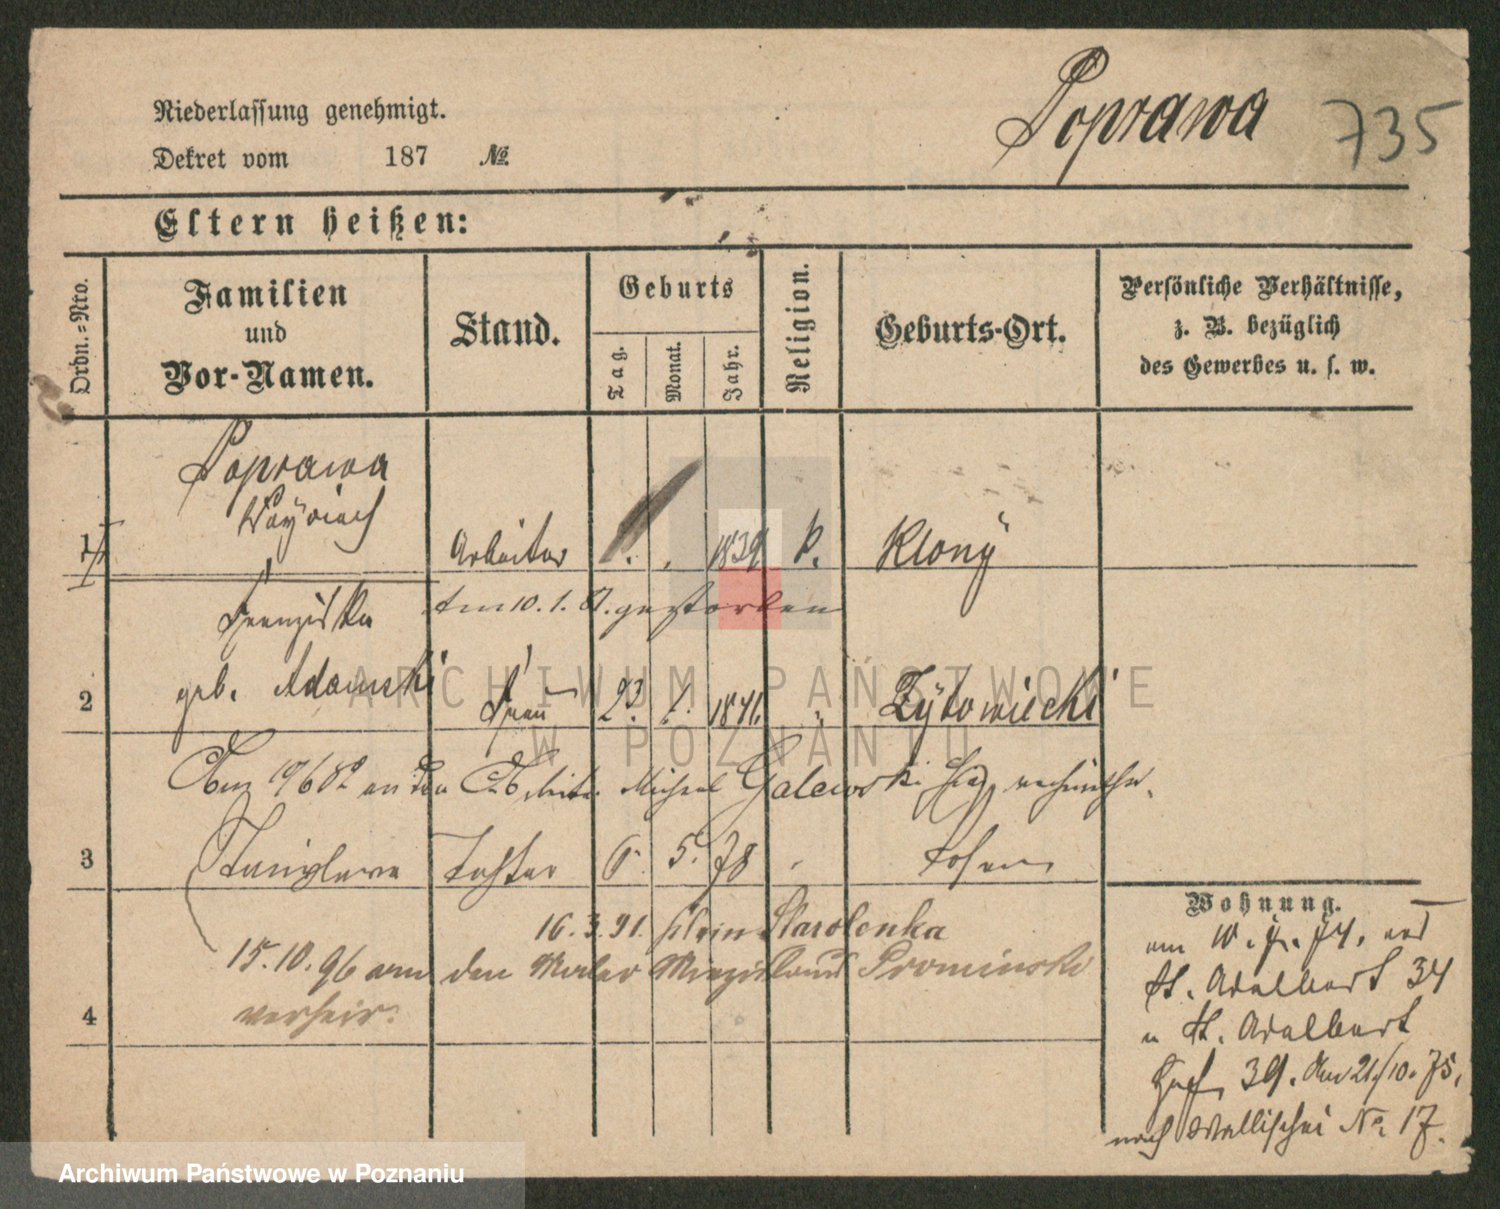 Niederlassung genehmigt.
Dekret vom 187 №
Poprawa 735
Eltern heißen:
Ordn.=Nro.
Familien
und
Vor-Namen.
Stand.
Geburts
Tag.
Monat.
Jahr.
Religion.
Geburts-Ort.
Persönliche Verhältnisse,
z. B. bezüglich
des Gewerbes u. s. w.
Poprawa
1 Arbeiter 1839 k. Klony
Franziska
am 10. 1. 81. gestorben
geb. Adamski
2 Frau 23. 1841 Zytowiecki
Am 19/6 82 an den Arbeiter Michael Galewski
3 Stanislawa Tochter 6. 5. 78 Posen
16. 3. 91. Klein Starolenka
15. 10. 96 den Maler Prominski
4 verheir.
Wohnung.
am 10. 74.
St. Adalbert 34
u St. Adalbert
39. Am 21/10. 75.
nach Wallischei No. 17.
ARCHIWUM PAŃSTWOWE
W POZNANIU
Archiwum Państwowe w Poznaniu